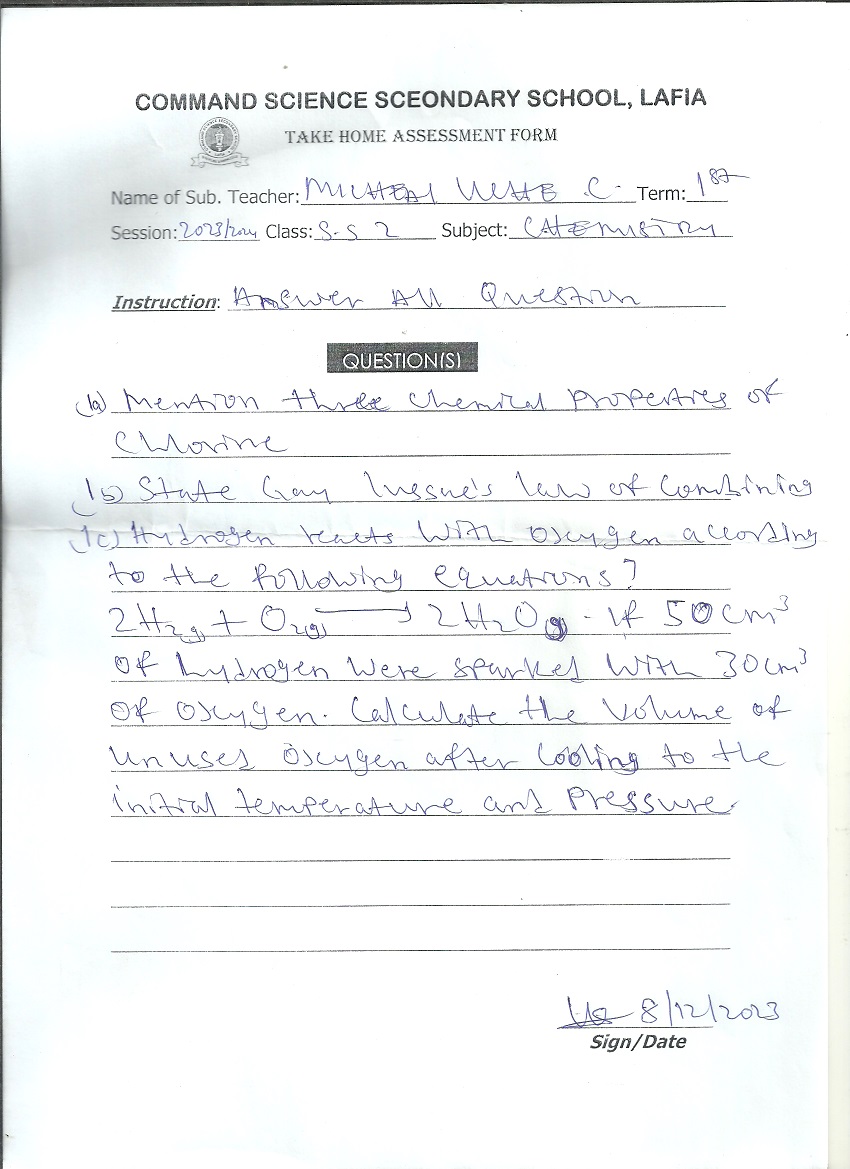 COMMAND SCIENCE SCEONDARY SCHOOL, LAFIA
TAKE HOME ASSESSMENT FORM
Name of Sub. Teacher: C. Term: 1st
Session: 2023/2024 Class: S.S 2 Subject: CHEMISTRY
Instruction: Answer All Question
QUESTION(S)
(1a) Mention three chemical properties of
Chlorine
(1b) State Gay lussac's law of combining
(1c) Hydrogen reacts with oxygen according
to the following equations?
2H2(g) + O2(g) → 2H2O(g). If 50cm³
of hydrogen were sparked with 30cm³
of oxygen. Calculate the volume of
unused oxygen after cooling to the
initial temperature and pressure.
8/12/2023
Sign/Date